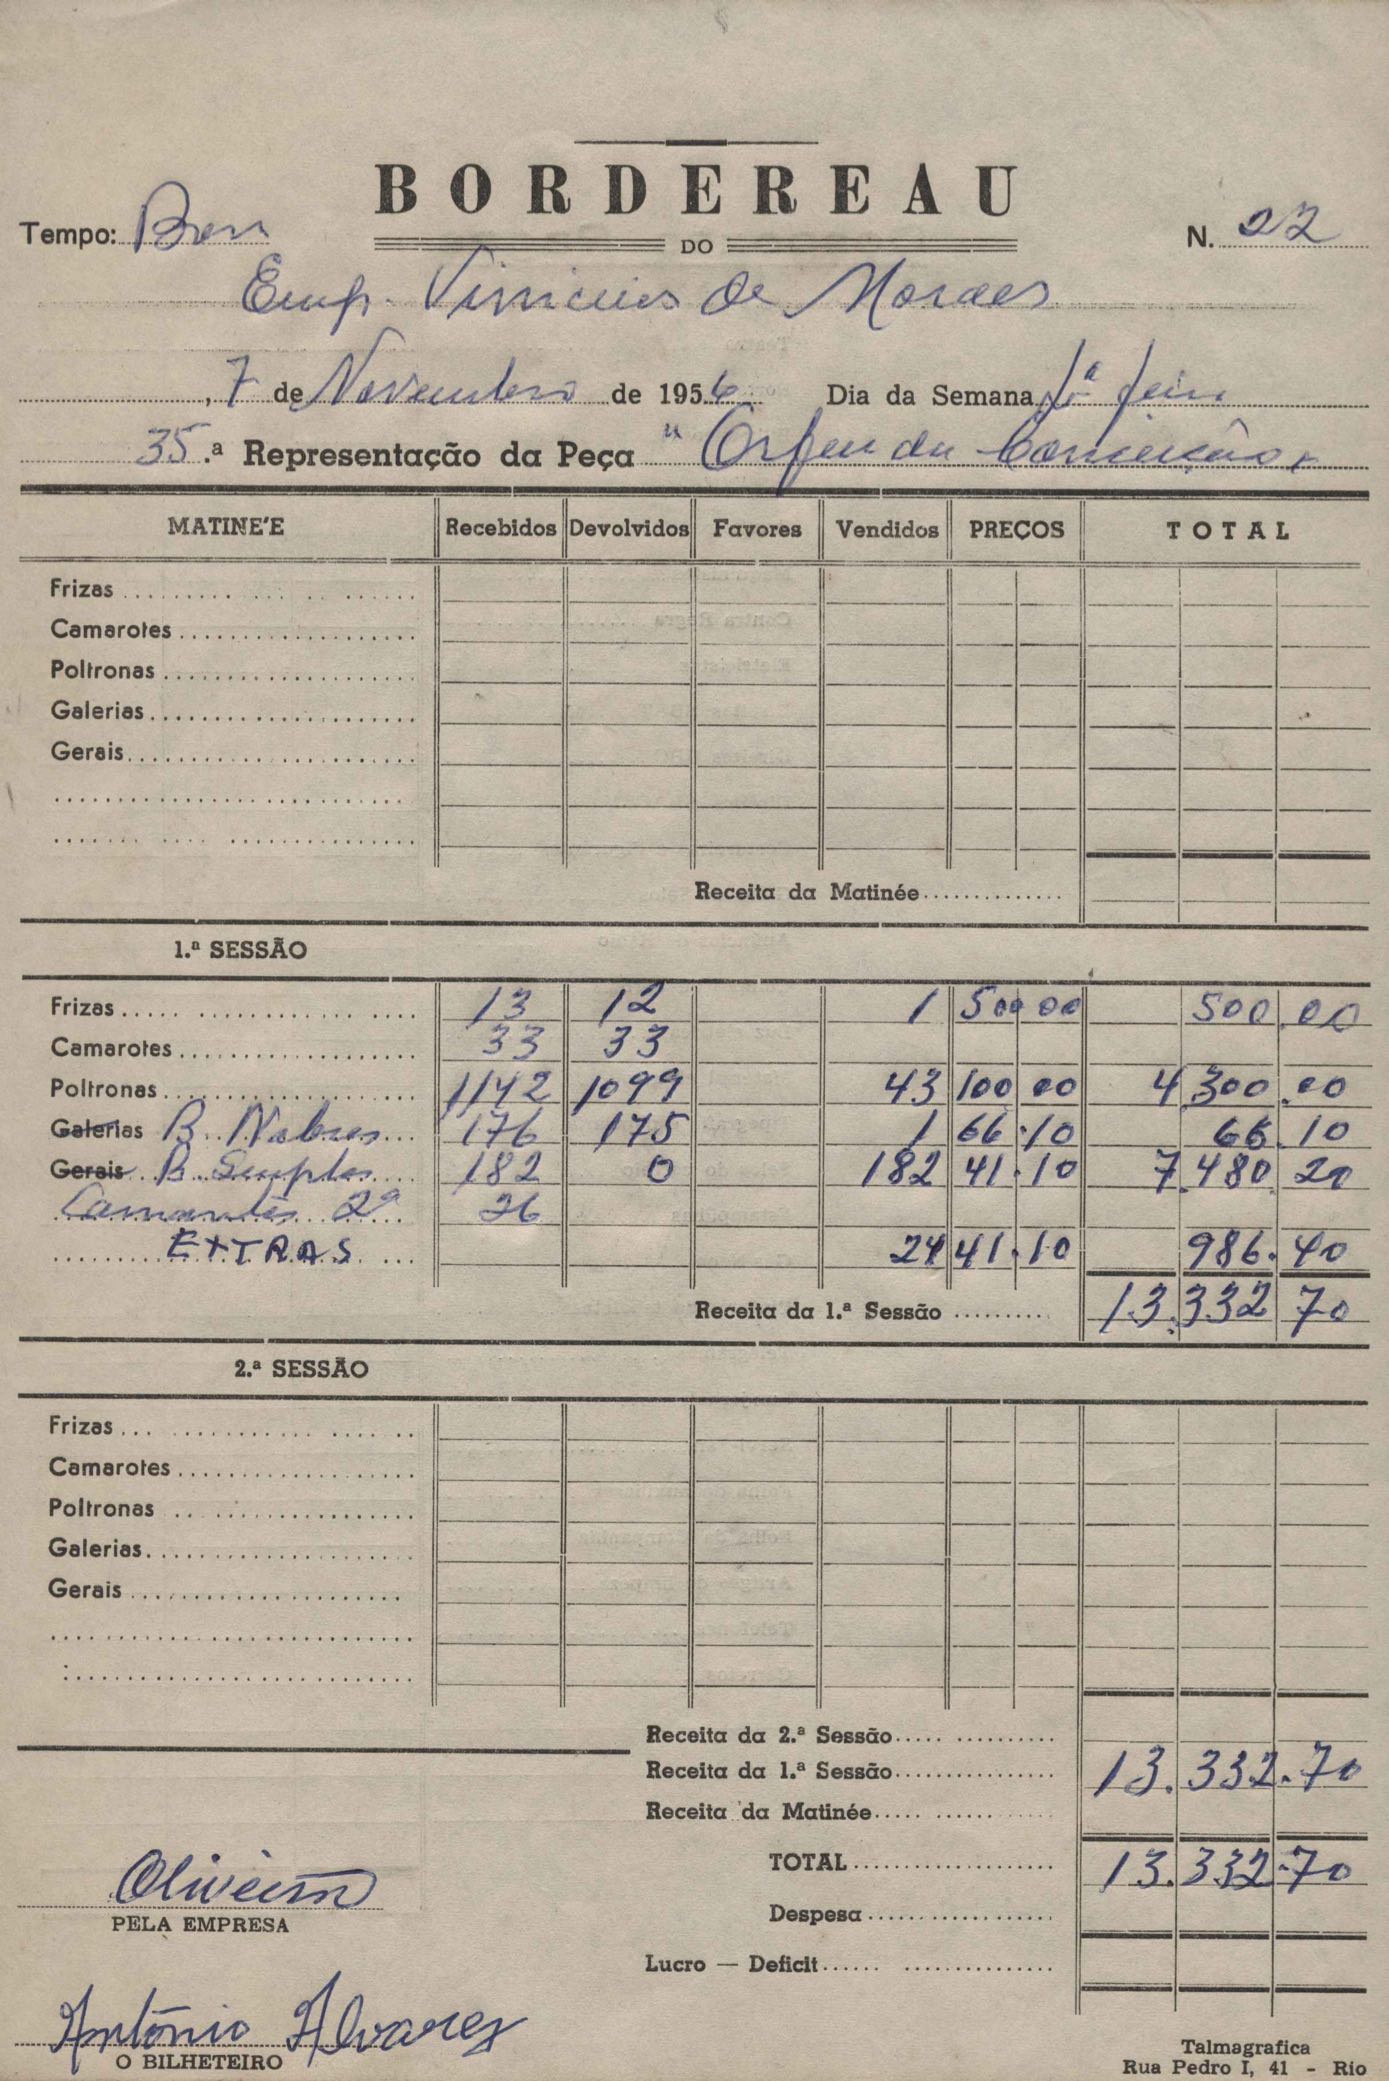 BORDEREAU
Tempo: Bom
DO
N. 22
Emp. Vinicius de Moraes
, 7 de Novembro de 1956 Dia da Semana feira
35.ª Representação da Peça "Orfeu da Conceição"
MATINE'E Recebidos Devolvidos Favores Vendidos PREÇOS TOTAL
Frizas
Camarotes
Poltronas
Galerias
Gerais
Receita da Matinée
1.ª SESSÃO
Frizas 13 12 1 500 00 500.00
Camarotes 33 33
Poltronas 1142 1099 43 100 00 4.300.00
Galerias B. Nobres 176 175 1 66.10 66.10
Gerais B. Simples 182 0 182 41.10 7.480.20
Camarotes 2ª 26
EXTRAS 24 41.10 986.40
Receita da 1.ª Sessão 13.332 70
2.ª SESSÃO
Frizas
Camarotes
Poltronas
Galerias
Gerais
Receita da 2.ª Sessão
Receita da 1.ª Sessão 13.332.70
Receita da Matinée
TOTAL 13.332.70
Despesa
Lucro — Deficit
Oliveira
PELA EMPRESA
António Alvarez
O BILHETEIRO
Talmagrafica
Rua Pedro I, 41 - Rio